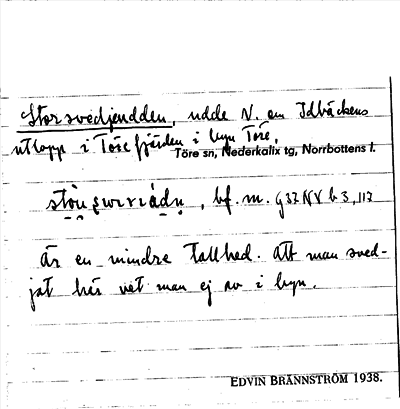 Storsvedjeudden, udde N. om Idbäckens
utlopp i Törefjärden i byn Töre,
Töre sn, Nederkalix tg, Norrbottens l.
bf. m. g 37 NV b 3, 113
Är en mindre tallhed. Att man sved-
jat här vet man ej av i byn.
EDVIN BRÄNNSTRÖM 1938.